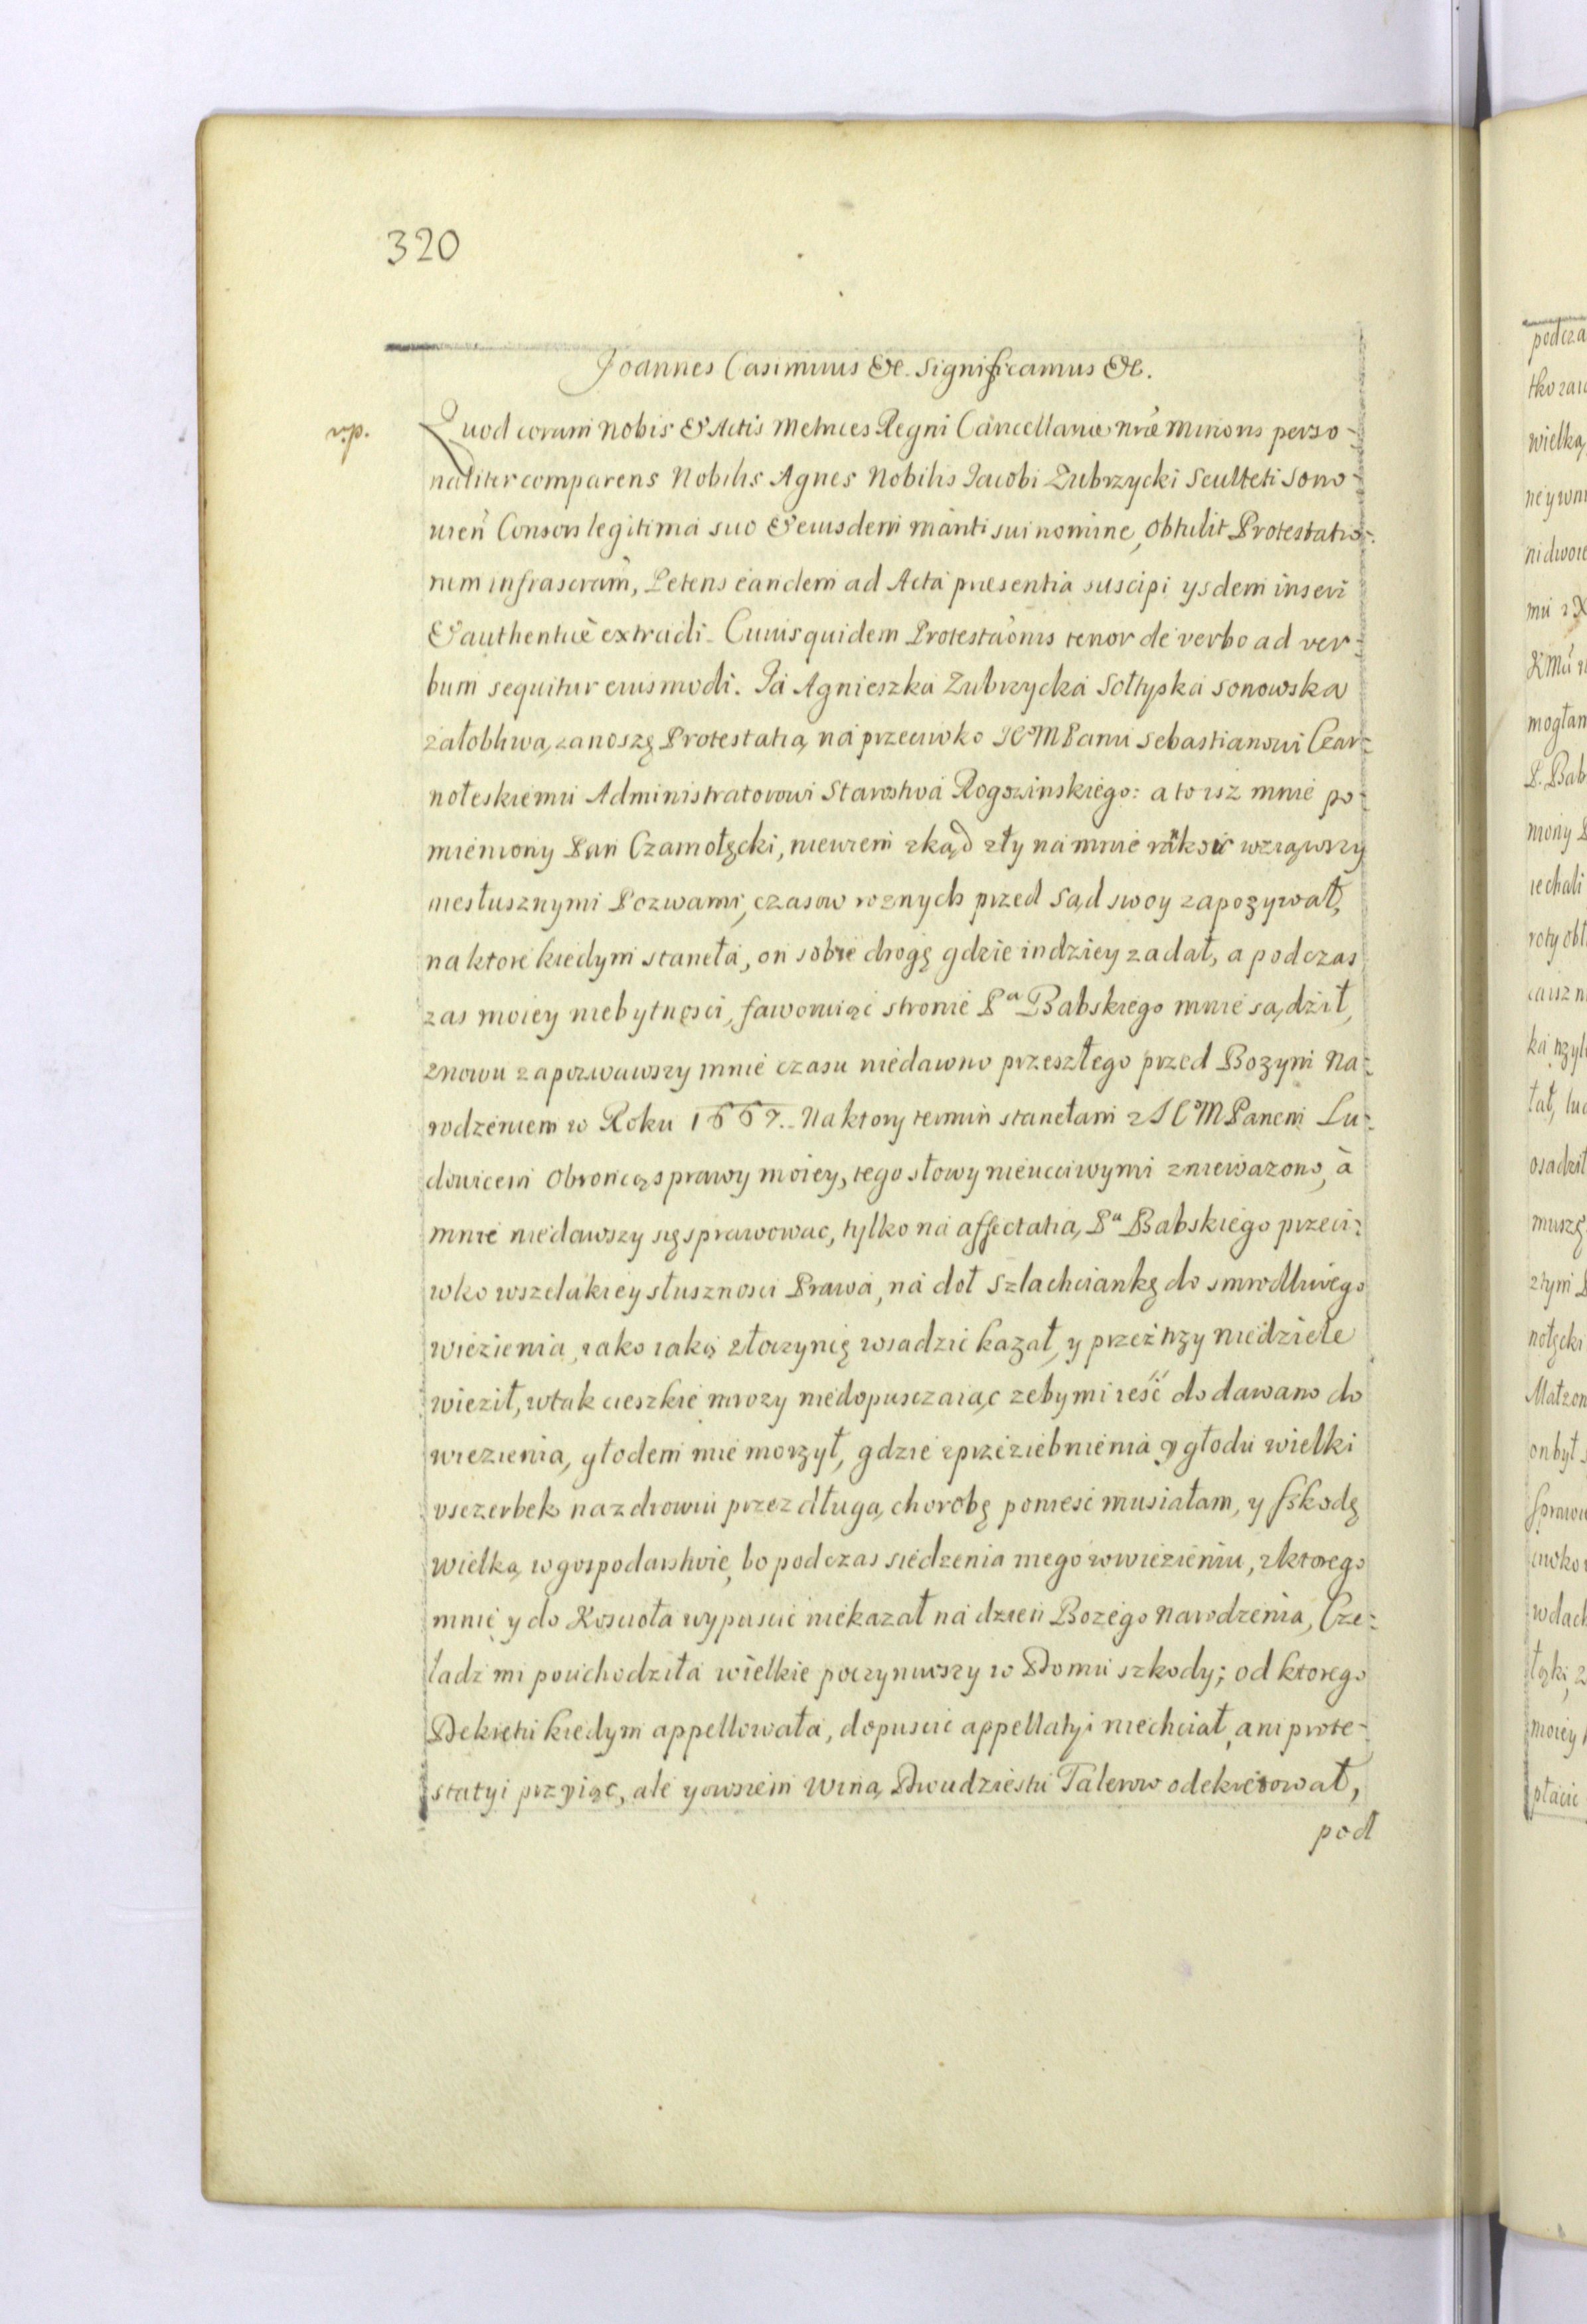 320
Joannes Casimirus &c. Significamus &c.
Quod coram nobis & Actis Metrices Regni Cancellariæ nræ Minoris perso-
naliter comparens Nobilis Agnes Nobilis Jacobi Zubrzycki Sculteti Sono-
wień Consors legitima suo & eiusdem mariti sui nomine, obtulit Protestatio-
nem infrascram, Petens eandem ad Acta præsentia suscipi ysdem inseri
& authentice extradi. Cuius quidem Protestaonis tenor de verbo ad ver-
bum sequitur eiusmodi. Ja Agnieszka Zubrzycka Sołtyska Sonowska
załobliwą zanoszę Protestatią na przeciwko JE°M Panu Sebastianowi Czar-
nołeskiemu Administratorowi Starostwa Rogozinskiego: a to isz mnie po-
mieniony Pan Czarnołęcki, niewiem zkąd zły na mnie wziąwszy
niesłusznymi Pozwami, czasow roznych przed Sąd swoy zapozywał,
na ktore kiedym staneła, on sobie drogę gdzie indziey zadał, a podczas
zas moiey niebytnosci, faworuiąc stronie Pª Babskiego mnie sądził,
znowu zapozwawszy mnie czasu niedawno przeszłego przed Bozym Na-
rodzeniem w Roku 1667. Na ktory termin stanełam z JE°M Panem Lu-
dowicem Obrońcą sprawy moiey, tego słowy nieucciwymi zniewazono, à
mnie niedawszy się sprawowac, tylko na affectatią Pª Babskiego przeci-
wko wszelakiey słusznosci Prawa, na doł Szlachciankę do smrodliwego
wiezienia, iako iaką złoczynię wsadzić kazał, y przez trzy niedziele
wieził, w tak cieszkie mrozy niedopusczaiąc zeby mi ieść dodawano do
wiezienia, głodem mie morzył, gdzie z przeziebnienia y głodu wielki
vsczerbek na zdrowiu przez długą chorobę poniesć musiałam, y szkodę
wielką w gospodarstwie, bo podczas siedzenia mego w wiezieniu, z ktorego
mnie y do Koscioła wypuscić niekazał na dzień Bozego Narodzenia, Cze-
ladz mi pouchodziła wielkie poczyniwszy w Domu szkody; od ktorego
Dekretu kiedym appellowała, dopuscić appellatyi niechciał, ani prote-
statyi przyiąc, ale y owszem winą Dwudziestu Talerow odekretował,
pod